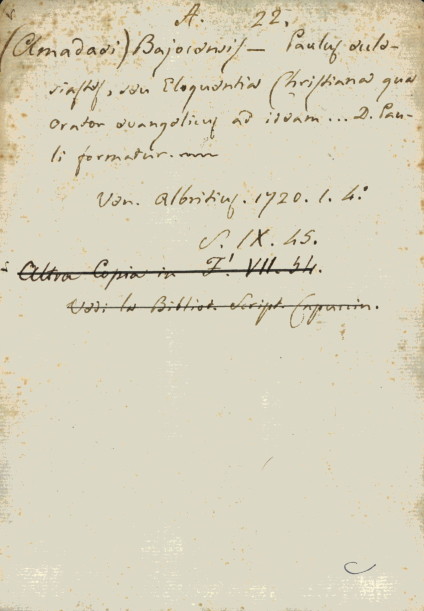 A. 22.
(Amadaei) Bajocensis — Paulus eccle-
siastes, seu Eloquentia Christiana qua
orator evangelicus ad ideam ... D. Pau-
li formatur.
Ven. Albritius. 1720. 1. 4.º
S. IX. 45.
Altra Copia in F! VII. 34.
Vedi la Bibliot. Script. Capuccin.